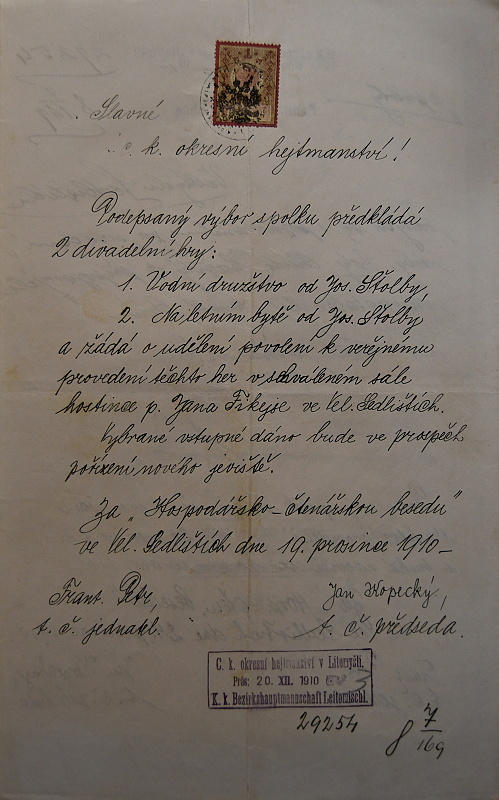 Slavné
c. k. okresní hejtmanství!
Podepsaný výbor spolku předkládá
2 divadelní hry:
1. Vodní družstvo od Jos. Štolby,
2. Na letním bytě od Jos. Štolby
a žádá o udělení povolení k veřejnému
provedení těchto her v schváleném sále
hostince p. Jana Fikejse ve Vel. Sedlištích.
Vybrané vstupné dáno bude ve prospěch
pořízení nového jeviště.
Za „Hospodářsko-čtenářskou besedu"
ve Vel. Sedlištích dne 19. prosince 1910-
Frant. Petr,
t. č. jednatel.
Jan Kopecký,
t. č. předseda.
C. k. okresní hejtmanství v Litomyšli.
Präs: 20. XII. 1910
K. k. Bezirkshauptmannschaft Leitomischl.
29254
8 7/169